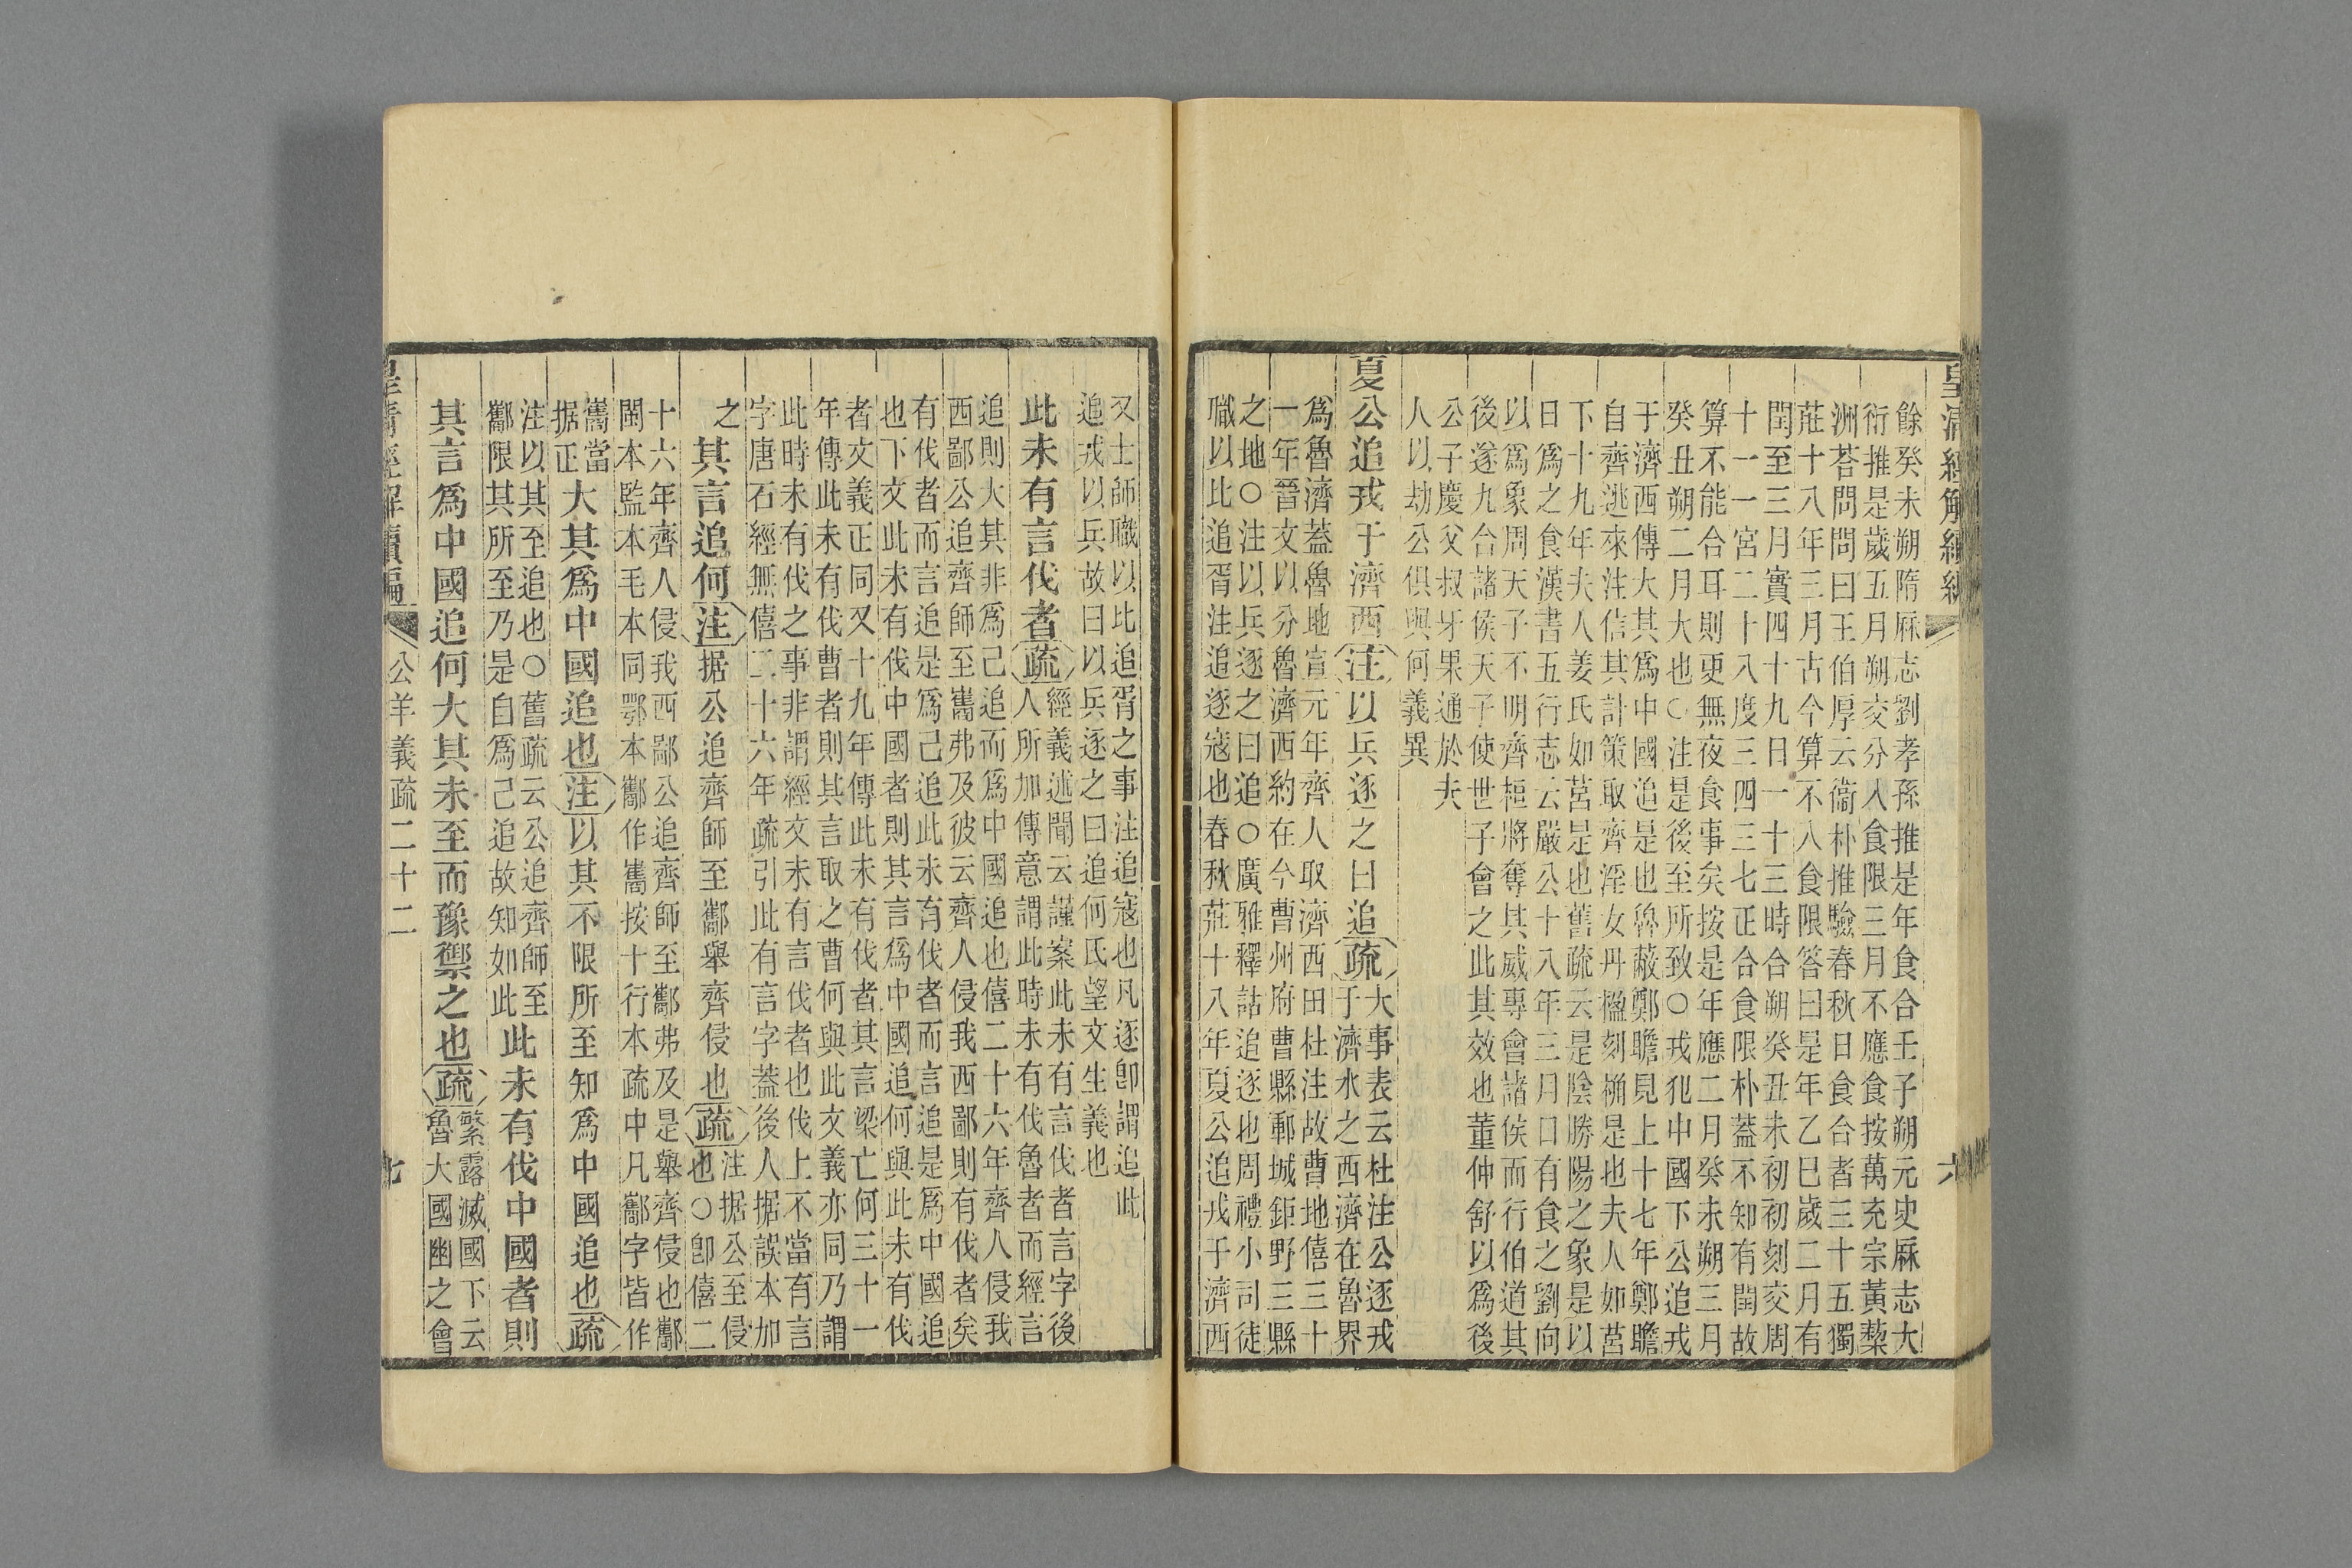 皇清經解續編
六
餘癸未朔隋厤志劉孝孫推是年食合壬子朔元史厤志大
衍推是歲五月朔交分入食限三月不應食按萬充宗黃藜
洲荅問問曰王伯厚云衞朴推驗春秋日食合者三十五獨
莊十八年三月古今算不入食限答曰是年乙巳歲二月有
閏至三月實四十九日一十三時合朔癸丑未初初刻交周
十一一宮二十八度三四三七正合食限朴蓋不知有閏故
算不能合耳則更無夜食事矣按是年應二月癸未朔三月
癸丑朔二月大也○注是後至所致○戎犯中國下公追戎
于濟西傳大其爲中國追是也魯蔽鄭瞻見上十七年鄭瞻
自齊逃來注信其計策取齊淫女丹楹刻桷是也夫人如莒
下十九年夫人姜氏如莒是也舊疏云是陰勝陽之象是以
日爲之食漢書五行志云嚴公十八年三月日有食之劉向
以爲象周天子不明齊桓將奪其威專會諸侯而行伯道其
後遂九合諸侯天子使世子會之此其效也董仲舒以爲後
公子慶父叔牙果通於夫
人以劫公俱與何義異
夏公追戎于濟西注以兵逐之曰追疏大事表云杜注公逐戎
于濟水之西濟在魯界
爲魯濟蓋魯地宣元年齊人取濟西田杜注故曹地僖三十
一年晉文以分魯濟西約在今曹州府曹縣郵城鉅野三縣
之地○注以兵逐之曰追○廣雅釋詁追逐也周禮小司徒
職以比追胥注追逐寇也春秋莊十八年夏公追戎于濟西
又士師職以比追胥之事注追寇也凡逐卽謂追此
追戎以兵故曰以兵逐之曰追何氏望文生義也
此未有言伐者疏經義述聞云謹案此未有言伐者言字後
人所加傳意謂此時未有伐魯者而經言
追則大其非爲己追而爲中國追也僖二十六年齊人侵我
西鄙公追齊師至巂弗及彼云齊人侵我西鄙則有伐者矣
有伐者而言追是爲己追此未有伐者而言追是爲中國追
也下文此未有伐中國者則其言爲中國追何與此未有伐
者文義正同又十九年傳此未有伐者其言梁亡何三十一
年傳此未有伐曹者則其言取之曹何與此文義亦同乃謂
此時未有伐之事非謂經文未有言伐者也伐上不當有言
字唐石經無僖二十六年疏引此有言字蓋後人據誤本加
之
其言追何注据公追齊師至酅舉齊侵也疏注据公至侵
也○卽僖二
十六年齊人侵我西鄙公追齊師至酅弗及是舉齊侵也酅
閩本監本毛本同鄂本酅作巂按十行本疏中凡酅字皆作
巂當
据正大其爲中國追也注以其不限所至知爲中國追也疏
注以其至追也○舊疏云公追齊師至
酅限其所至乃是自爲己追故知如此此未有伐中國者則
其言爲中國追何大其未至而豫禦之也疏繁露滅國下云
魯大國幽之會
皇清經解續編
公羊義疏二十二
七